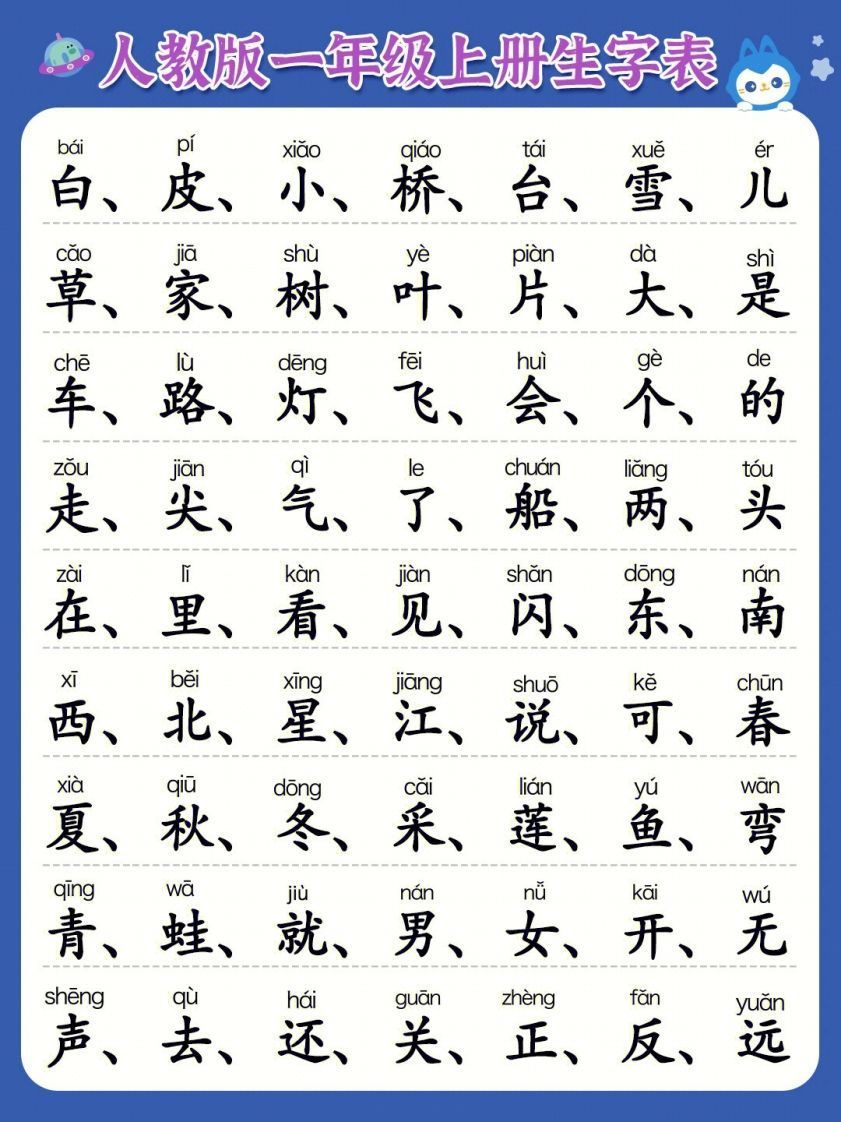 人教版一年级上册生字表
bái pí xiǎo qiáo tái xuě ér
白、皮、小、桥、台、雪、儿
cǎo jiā shù yè piàn dà shì
草、家、树、叶、片、大、是
chē lù dēng fēi huì gè de
车、路、灯、飞、会、个、的
zǒu jiān qì le chuán liǎng tóu
走、尖、气、了、船、两、头
zài lǐ kàn jiàn shǎn dōng nán
在、里、看、见、闪、东、南
xī běi xīng jiāng shuō kě chūn
西、北、星、江、说、可、春
xià qiū dōng cǎi lián yú wān
夏、秋、冬、采、莲、鱼、弯
qīng wā jiù nán nǚ kāi wú
青、蛙、就、男、女、开、无
shēng qù hái guān zhèng fǎn yuǎn
声、去、还、关、正、反、远